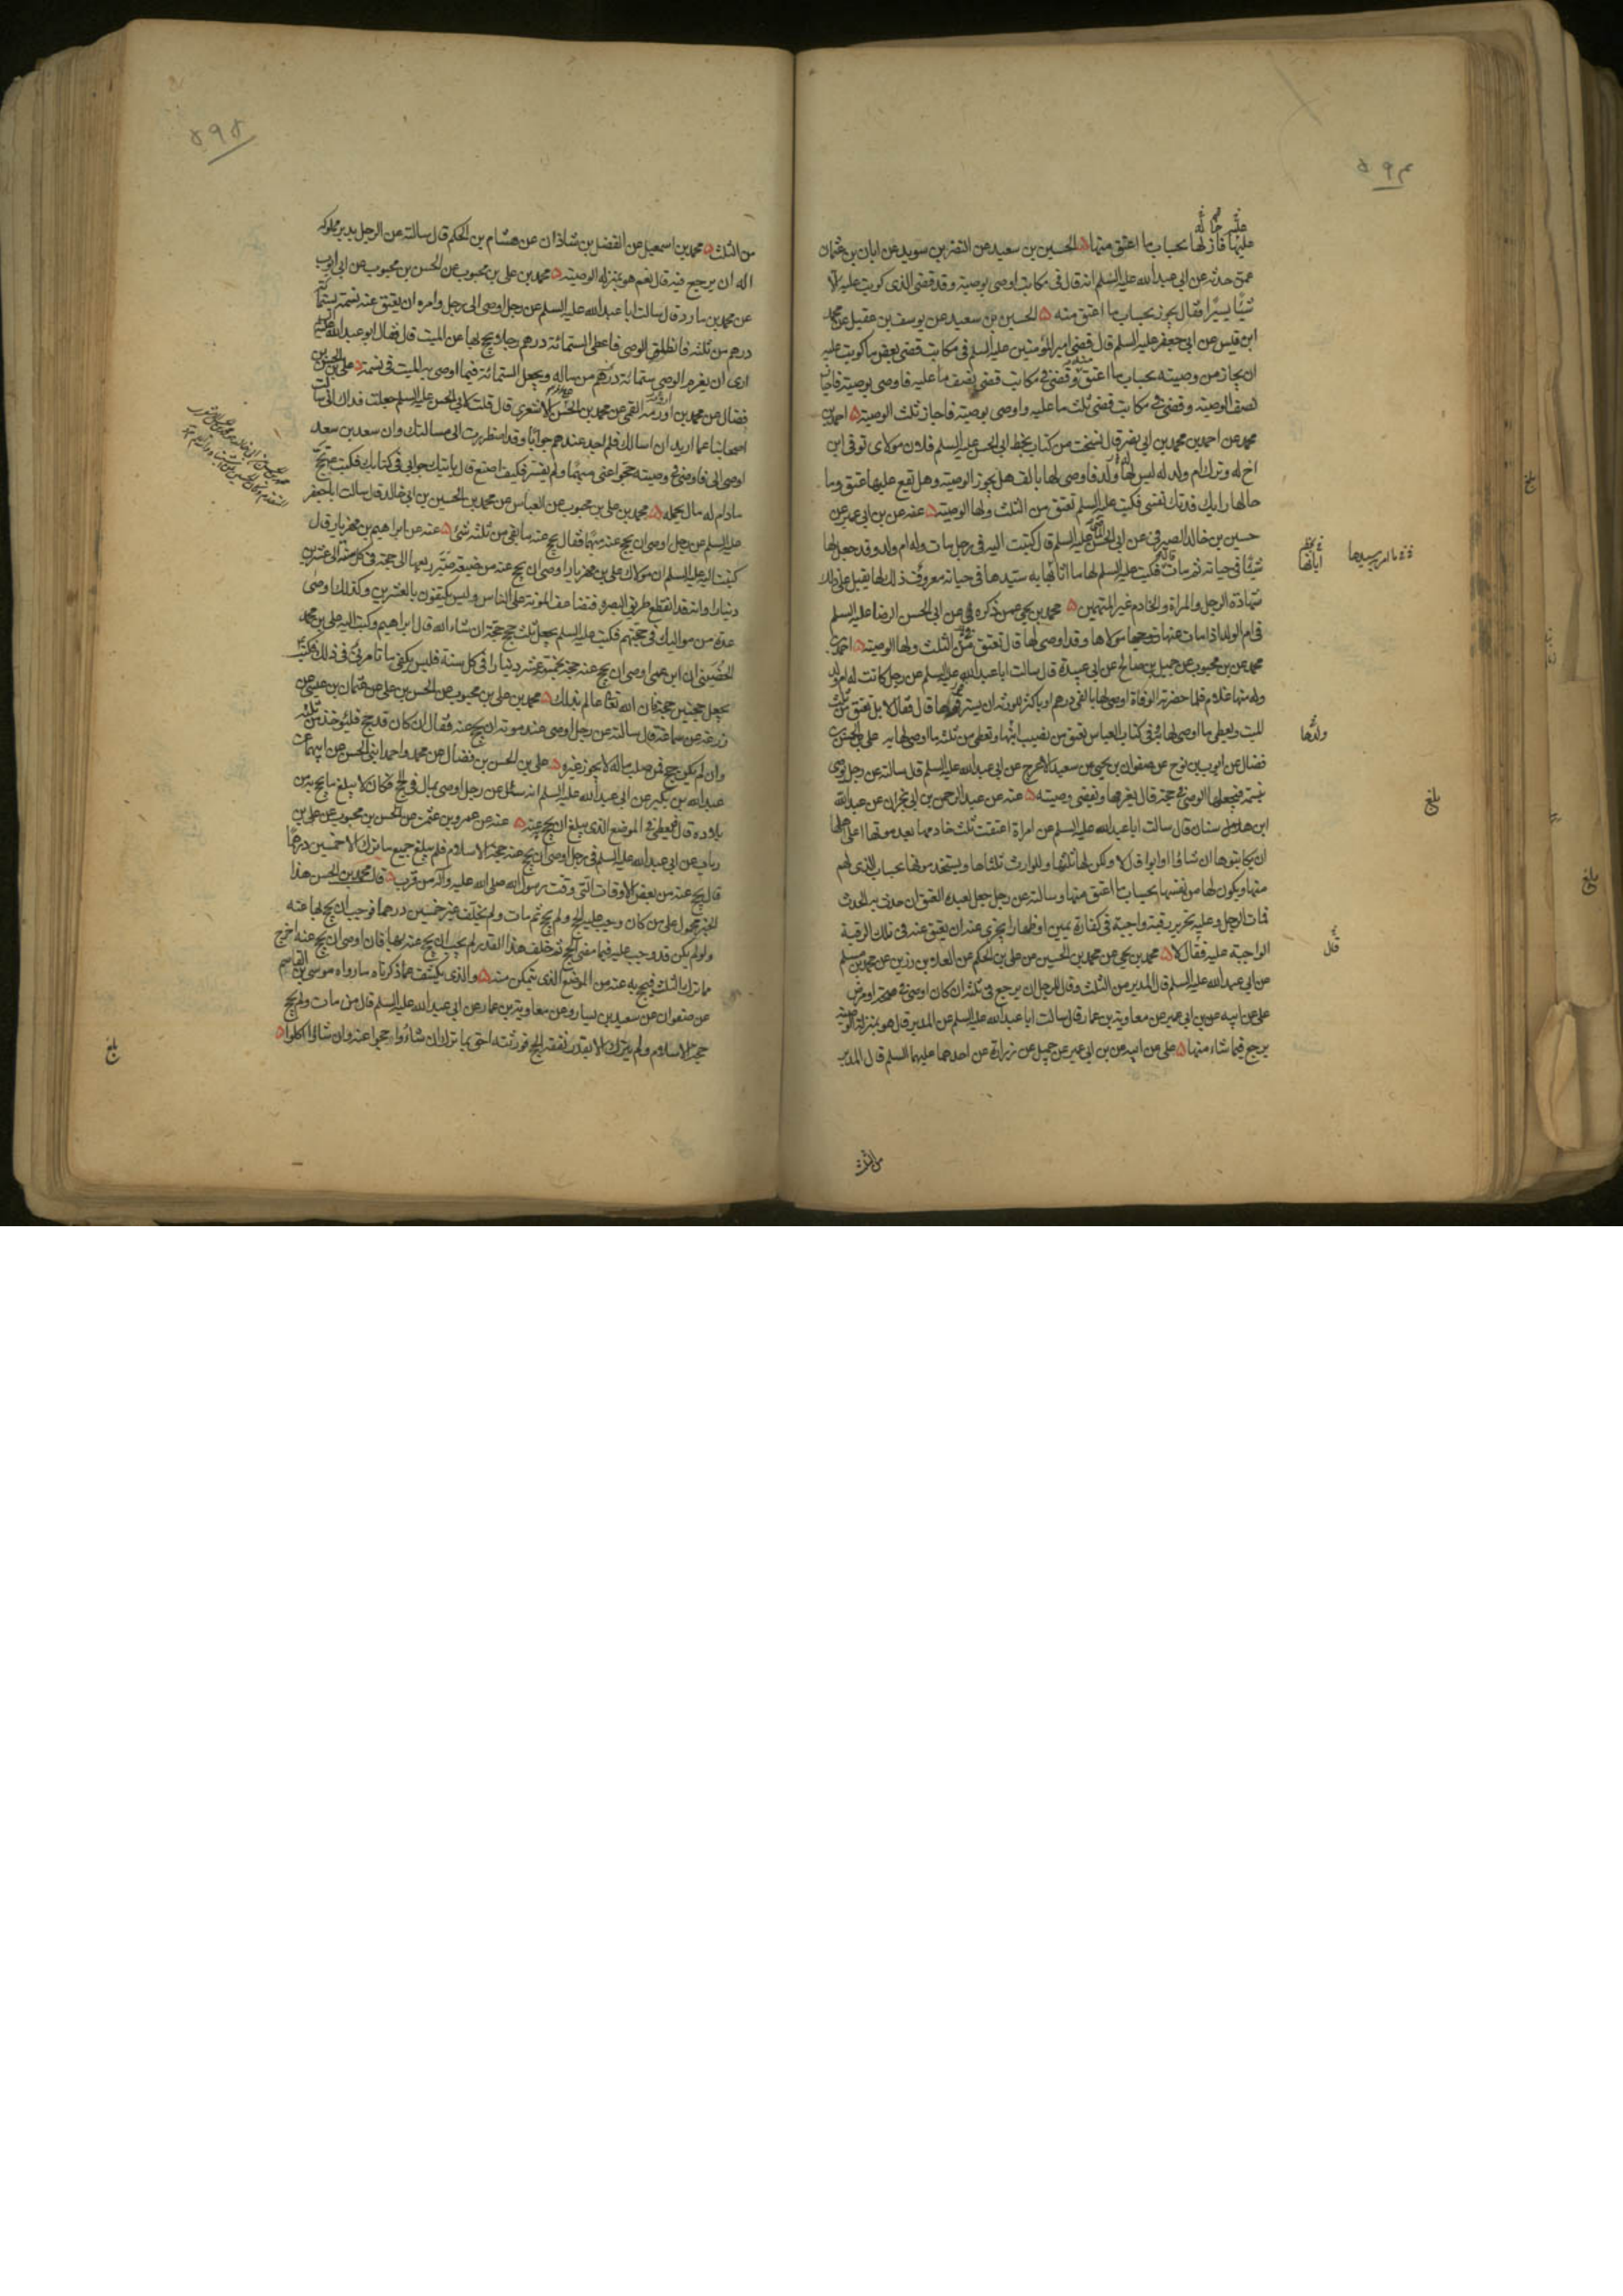 ۵۹۴
عليها فاز لها بحساب ما اعتق منها ۵ الحسين بن سعيد عن النضر بن سويد عن ابان بن عثمان
عمن حدثه عن ابي عبد الله عليه السلم انه قال في مكاتب اوصى بوصية وقد قضى الذي كوتب عليه الا
شيئا يسيرا فقال يجوز بحساب ما اعتق منه ۵ الحسين بن سعيد عن يوسف بن عقيل عن محمد
ابن قيس عن ابي جعفر عليه السلم قال قضى امير المؤمنين عليه السلم في مكاتب قضى بعض ما كوتب عليه
ان يجاز من وصيته بحساب ما اعتق منه وقضى في مكاتب قضى نصف ما عليه فاوصى بوصية فاجاز
نصف الوصية وقضى في مكاتب قضى ثلث ما عليه واوصى بوصية فاجاز ثلث الوصية ۵ احمد بن
محمد عن احمد بن محمد بن ابي نصر قال نسخت من كتاب بخط ابي الحسن عليه السلم فلان مولاى توفى ابن
اخ له وترك ام ولد له ليس لها ولد فاوصى لها بالف هل يجوز الوصية وهل يقع عليها عتق وما
حالها رايك فدتك نفسى فكتب عليه السلم تعتق من الثلث ولها الوصية ۵ عنه عن بن ابي عمير عن
حسين بن خالد الصيرفي عن ابي الحسن عليه السلم قال كتبت اليه في رجل مات وله ام ولد وقد جعل لها
شيئا في حياته ثم مات فكتب عليه السلم لها ما اثابها به سيدها في حياته معروف ذلك لها يقبل على ذلك
شهادة الرجل والمراة والخادم غير المتهمين ۵ محمد بن يحيى عمن ذكره عن ابي الحسن الرضا عليه السلم
في ام الولد اذا مات عنها مولاها وقد اوصى لها قال تعتق من الثلث ولها الوصية ۵ احمد بن
محمد عن بن محبوب عن جميل بن صالح عن ابي عبيدة قال سالت ابا عبد الله عليه السلم عن رجل كانت له ام ولد
وله منها غلام فلما حضرته الوفاة اوصى لها بالفي درهم او باكثر للورثة ان يسترقوها قال فقال لا بل تعتق من ثلث
الميت وتعطى ما اوصى لها به في كتاب العباس تعتق من نصيب ابنها وتعطى من ثلثه ما اوصى لها به على بن الحسن بن
فضال عن ايوب بن نوح عن صفوان بن يحيى عن سعيد الاعرج عن ابي عبد الله عليه السلم قال سالته عن رجل يوصى
بنسمة فيجعلها الوصى في حجة قال يغرمها ويقضى وصيته ۵ عنه عن عبد الرحمن بن ابي نجران عن عبد الله
ابن سنان قال سالت ابا عبد الله عليه السلم عن امراة اعتقت ثلث خادمها بعد موتها اعلى اهلها
ان يكاتبوها ان شاؤا او ابوا قال لا ولكن لها ثلثها وللوارث ثلثاها ويستخدمونها بحساب الذي لهم
منها ويكون لها من نفسها بحساب ما اعتق منها وسالته عن رجل جعل لعبده العتق ان حدث به الحدث
فمات الرجل وعليه تحرير رقبة واجبة في كفارة يمين او ظهار ايجزى عنه ان يعتق عنه في تلك الرقبة
الواجبة عليه فقال لا ۵ محمد بن يحيى عن محمد بن الحسين عن على بن الحكم عن العلاء بن رزين عن محمد بن مسلم
عن ابي عبد الله عليه السلم قال المدبر من الثلث وقال للرجل ان يرجع في ثلثه ان كان اوصى في صحة او مرض
على عن ابيه عن بن ابي عمير عن معاوية بن عمار قال سالت ابا عبد الله عليه السلم عن المدبر قال هو بمنزلة الوصية
يرجع فيما شاء منها ۵ على عن ابيه عن بن ابي عمير عن جميل عن زرارة عن احدهما عليهما السلم قال المدبر
من الثلث
ولدها
بلغ
قال
۵۹۵
من الثلث ۵ محمد بن اسمعيل عن الفضل بن شاذان عن هشام بن الحكم قال سالته عن الرجل يدبر مملوكه
اله ان يرجع فيه قال نعم هو بمنزلة الوصية ۵ محمد بن على بن محبوب عن الحسن بن محبوب عن ابي ايوب
عن محمد بن مارد قال سالت ابا عبد الله عليه السلم عن رجل اوصى الى رجل وامره ان يعتق عنه نسمة بستمائة
درهم من ثلثه فانطلق الوصى فاعطى الستمائة درهم رجلا يحج بها عن الميت قال فقال ابو عبد الله عليه السلم
ارى ان يغرم الوصى ستمائة درهم من ماله ويجعل الستمائة فيما اوصى به الميت في نسمة ۵ على بن الحسن بن
فضال عن محمد بن اورمة القمى عن محمد بن الحسن الاشعرى قال قلت لابي الحسن عليه السلم جعلت فداك انى سالت
اصحابنا عما اريد ان اسالك فلم اجد عندهم جوابا وقد اضطررت الى مسالتك وان سعد بن سعد
اوصى الى فاوصى في وصيته حجوا عنى مبهما ولم يفسر فكيف اصنع قال ياتيك جوابي في كتابك فكتب يحج
مادام له مال يحمله ۵ محمد بن على بن محبوب عن العباس عن محمد بن الحسين بن ابي خالد قال سالت ابا جعفر
عليه السلم عن رجل اوصى ان يحج عنه مبهما فقال يحج عنه ما بقى من ثلثه شئ ۵ عنه عن ابراهيم بن مهزيار قال
كتبت اليه عليه السلم ان مولاك على بن مهزيار اوصى ان يحج عنه من ضيعة صير ربعها الى حجة في كل سنة الى عشرين
دينارا وانه قد انقطع طريق البصرة فتضاعف المؤنة على الناس وليس يكتفون بالعشرين وكذلك اوصى
عدة من مواليك في حججهم فكتب عليه السلم يجعل ثلث حجج حجتين ان شاء الله قال ابراهيم وكتب اليه على بن محمد
الحضينى ان ابن عمى اوصى ان يحج عنه حجة بخمسة عشر دينارا في كل سنة فليس يكفى ما تامرنى في ذلك فكتب
يجعل حجتين حجة فان الله تعالى عالم بذلك ۵ محمد بن على بن محبوب عن الحسن بن على عن عثمان بن عيسى عن
زرعة عن سماعة قال سالته عن رجل اوصى عند موته ان يحج عنه فقال ان كان قد حج فليؤخذ من ثلثه
وان لم يكن حج فمن صلب ماله لا يجوز غيره ۵ على بن الحسن بن فضال عن محمد واحمد ابنى الحسن عن ابيهما عن
عبد الله بن بكير عن ابي عبد الله عليه السلم انه سئل عن رجل اوصى بمال في الحج فكان لا يبلغ ما يحج به من
بلاده قال فيعطى في الموضع الذي يبلغ ان يحج عنه ۵ عنه عن عمرو بن عثمن عن الحسن بن محبوب عن على بن
رباب عن ابي عبد الله عليه السلم في رجل اوصى ان يحج عنه حجة الاسلام فلم يبلغ جميع ما ترك الا خمسين درهما
قال يحج عنه من بعض الاوقات التى وقت رسول الله صلى الله عليه واله من قرب ۵ قال محمد بن الحسن هذا
الخبر محمول على من كان وجب عليه الحج ولم يحج ثم مات ولم يخلف غير خمسين درهما فوجب ان يحج بها عنه
ولو لم يكن قد وجب عليه فيما مضى الحج ثم خلف هذا القدر لم يجب ان يحج عنه بها فان اوصى ان يحج عنه اخرج
ما ترك بالثلث فيحج به عنه من الموضع الذي يتمكن منه ۵ والذي يكشف عما ذكرناه ما رواه موسى بن القاسم
عن صفوان عن سعيد بن يسار وعن معاوية بن عمار عن ابي عبد الله عليه السلم قال من مات ولم يحج
حجة الاسلام ولم يترك الا بقدر نفقة الحج فورثته احق بما ترك ان شاؤا حجوا عنه وان شاؤا اكلوا ۵
بلغ